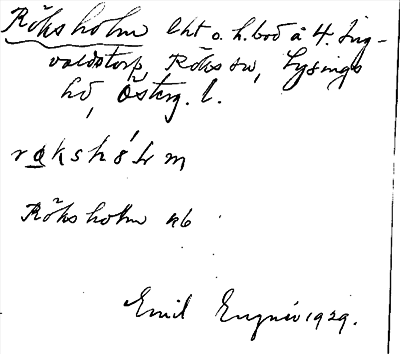 Röksholm lht o. h.bod å 4. Ing-
valdstorp, Röks sn, Lysings
hd, Österg. l.
røkshólm
Röksholm nb
Emil 1929.